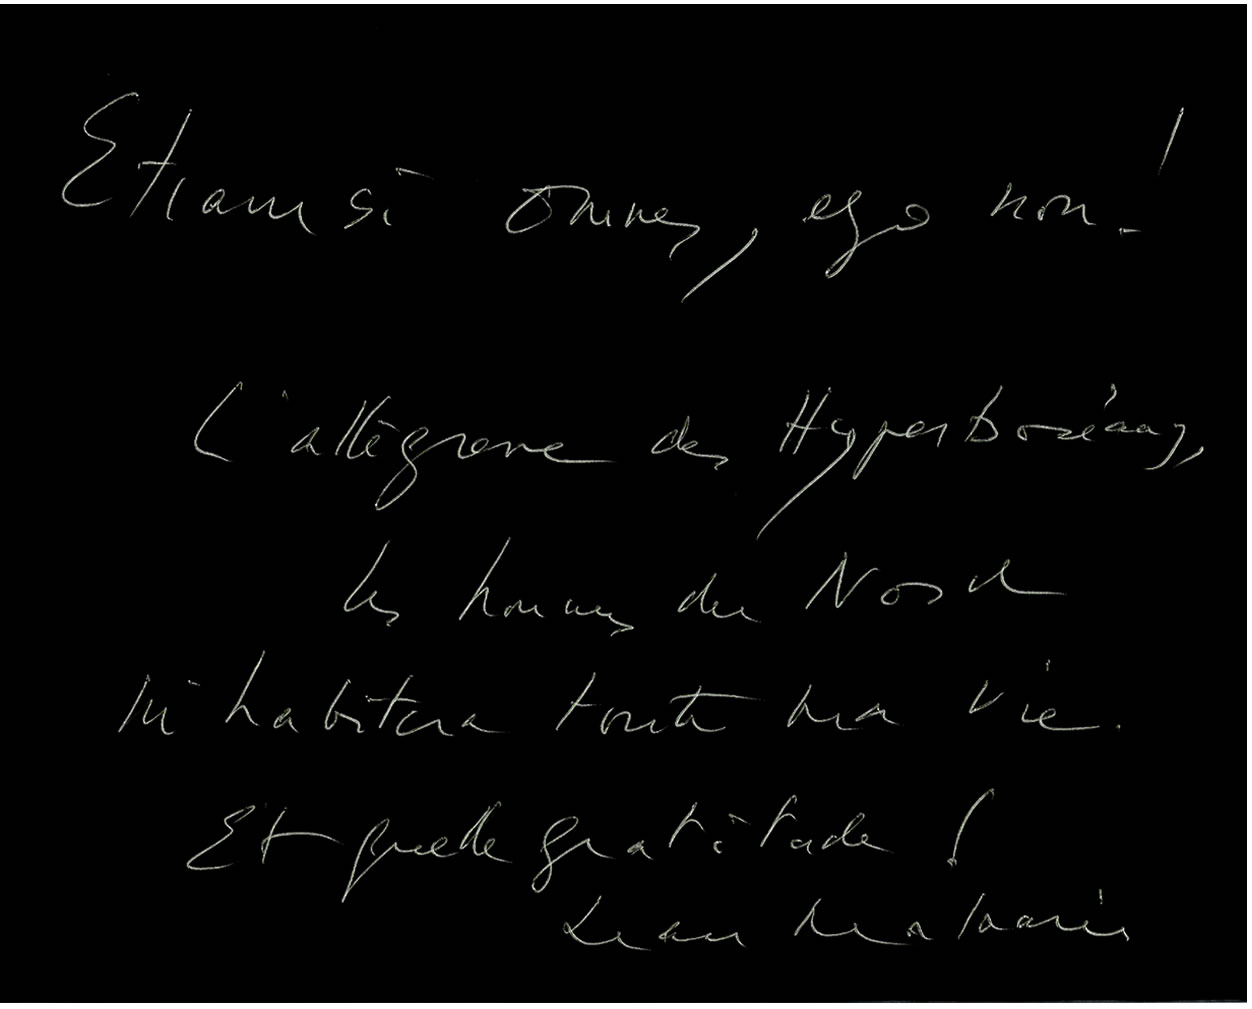 Etiam si omnes, ego non!
L'allégresse des Hyperboréens,
les hommes du Nord
m'habitera toute ma vie.
Et quelle gratitude !
Jean Malaurie